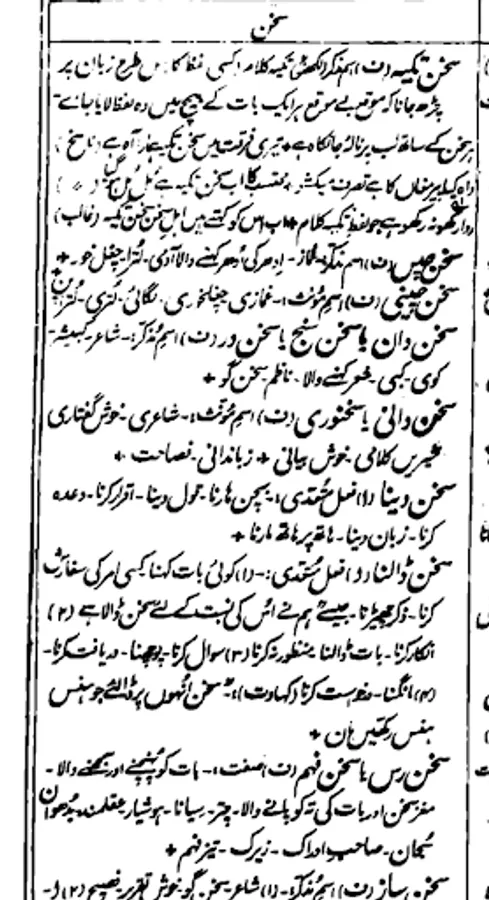 سخن
سخن تکیہ (ف) اسم مذکر (لکھنؤ) تکیہ کلام۔ کسی لفظ کا اس طرح زبان پر
چڑھ جانا کہ موقع بے موقع ہر ایک بات کے بیچ میں وہ لفظ لایا جائے
ہر سخن کے ساتھ لب پر نالۂ جانکاہ ہے + تیری فرقت میں سخن تکیہ ہمارا آہ ہے (ناسخ)
سخن تکیہ ہے
روا رکھو نہ رکھو ہے جو لفظ تکیہ کلام + اب اس کو کہتے ہیں اہل سخن سخن تکیہ (غالب)
سخن چیں (ف) اسم مذکر۔ غماز۔ ادھر کی اُدھر کہنے والا آدمی۔ لُترا چغل خور۔ +
سخن چینی (ف) اسم مؤنث :- غمازی چغلخوری۔ لگائی۔ لُتری۔ لُتراپن +
سخن دان یا سخن سنج یا سخن ور (ف) اسم مذکر :- شاعر۔ کبیشر۔
کوی۔ کبی۔ شعر کہنے والا۔ ناظم سخن گو +
سخن دانی یا سخنوری (ف) اسم مؤنث :- شاعری۔ خوش گفتاری
شیریں کلامی۔ خوش بیانی + زباندانی۔ فصاحت +
سخن دینا (ا) فعل متعدی :۔ بچن ہارنا۔ قول دینا۔ اقرار کرنا۔ وعدہ
کرنا۔ زبان دینا۔ ہاتھ پر ہاتھ مارنا +
سخن ڈالنا (ا) فعل متعدی :- (۱) کوئی بات کہنا کسی امر کی سفارش
کرنا۔ ذکر چھیڑنا۔ جیسے ہم نے اُس کی نسبت کے لئے سخن ڈالا ہے (۲)
انکار کرنا۔ بات ڈالنا منظور نہ کرنا (۳) سوال کرنا۔ پوچھنا۔ دریافت کرنا۔
(۴) مانگنا۔ درخواست کرنا (کہاوت) :۔ سخن اُنہوں پر ڈالئے جو ہنس
ہنس رکھیں مان +
سخن رس یا سخن فہم (ف) صفت :- بات کو پہنچنے اور سمجھنے والا۔
مغز سخن اور بات کی تہ کو پانے والا۔ چتر۔ سیانا۔ ہوشیار عقلمند۔ بدھوان
سُجان۔ صاحب ادراک۔ زیرک۔ تیز فہم +
سخن ساز (ف) اسم مذکر :- (۱) شاعر۔ سخن گو۔ خوش تقریر۔ فصیح (۲)